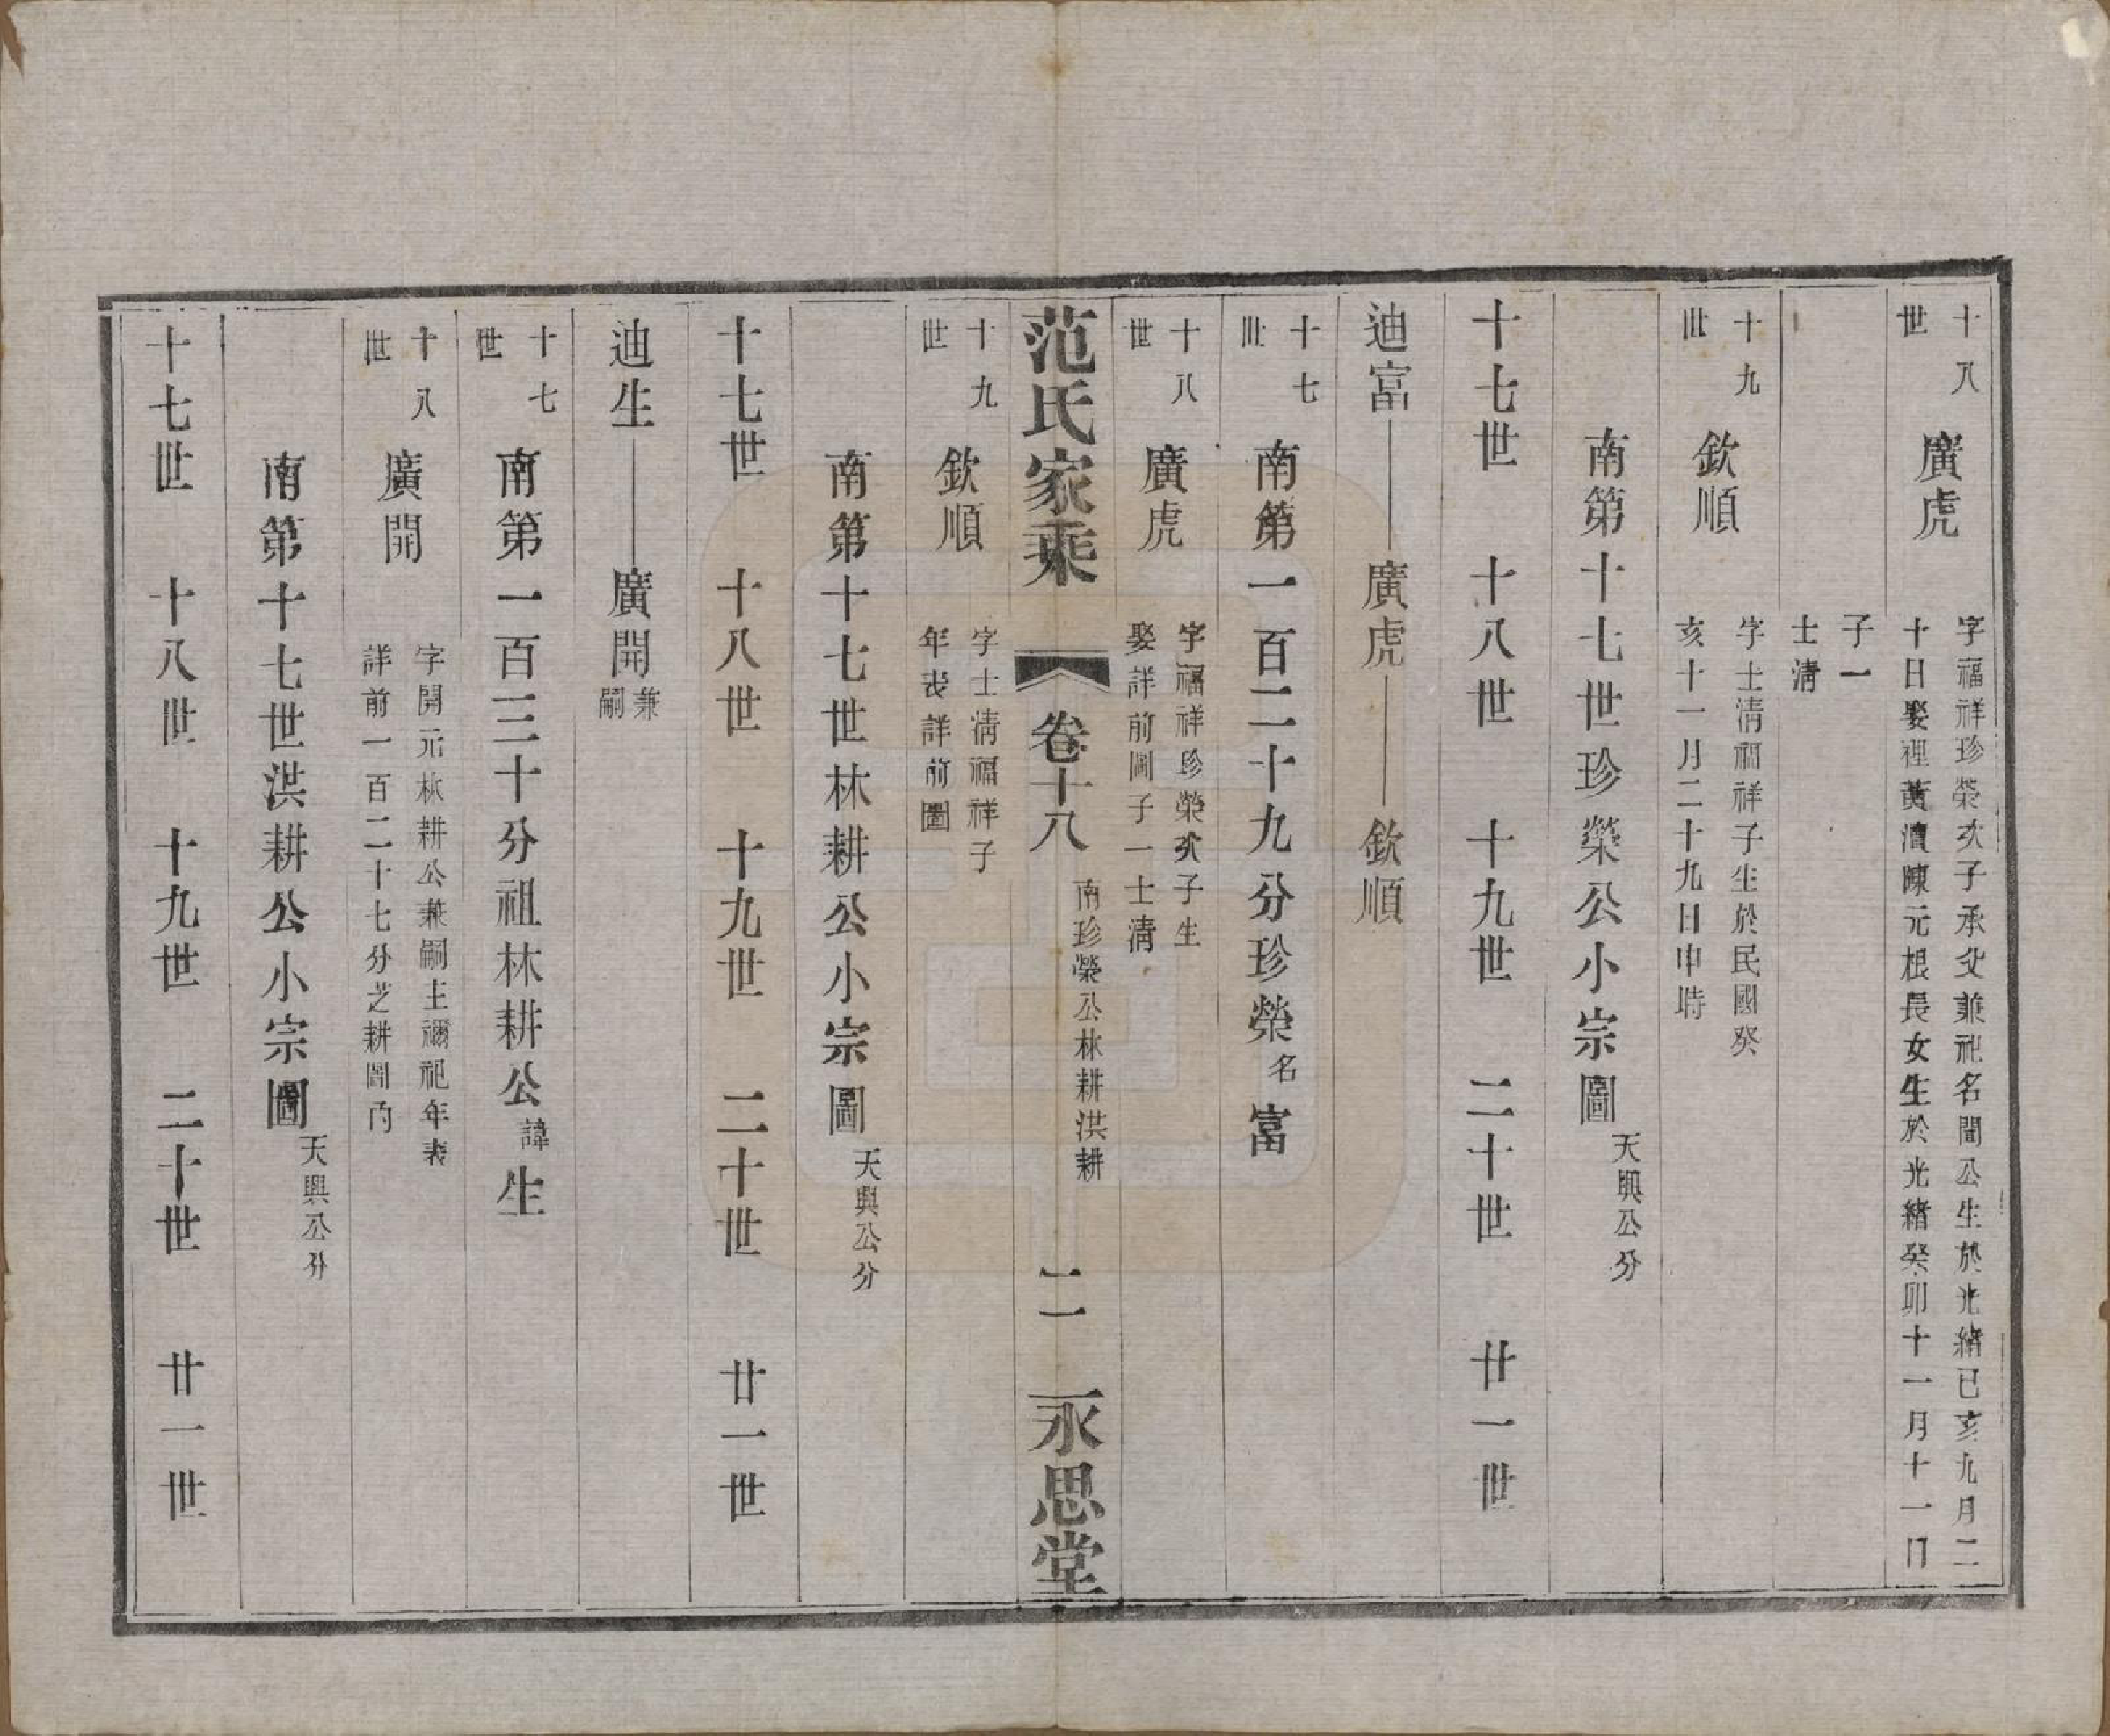 十八世 廣虎 字福祥珍榮次子承父兼祀名閶公生於光緒已亥九月二
十日娶裡黃瀆陳元根長女生於光緒癸卯十一月十一日
子一
士清
十九世 欽順 字士清福祥子生於民國癸
亥十一月二十九日申時
南第十七世珍榮公小宗圖 天興公分
十七世 十八世 十九世 二十世 廿一世
迪富 廣虎 欽順
十七世 南第一百二十九分珍榮名富
十八世 廣虎 字福祥珍榮次子生
娶詳前圖子一士清
范氏家乘 卷十八 南珍榮公林耕洪耕 二一 永思堂
十九世 欽順 字士清福祥子
年表詳前圖
南第十七世林耕公小宗圖 天興公分
十七世 十八世 十九世 二十世 廿一世
迪生 廣開 兼嗣
十七世 南第一百三十分祖林耕公諱生
十八世 廣開 字開元林耕公兼嗣主禰祀年表
詳前一百二十七分芝耕圖內
南第十七世洪耕公小宗圖 天興公分
十七世 十八世 十九世 二十世 廿一世